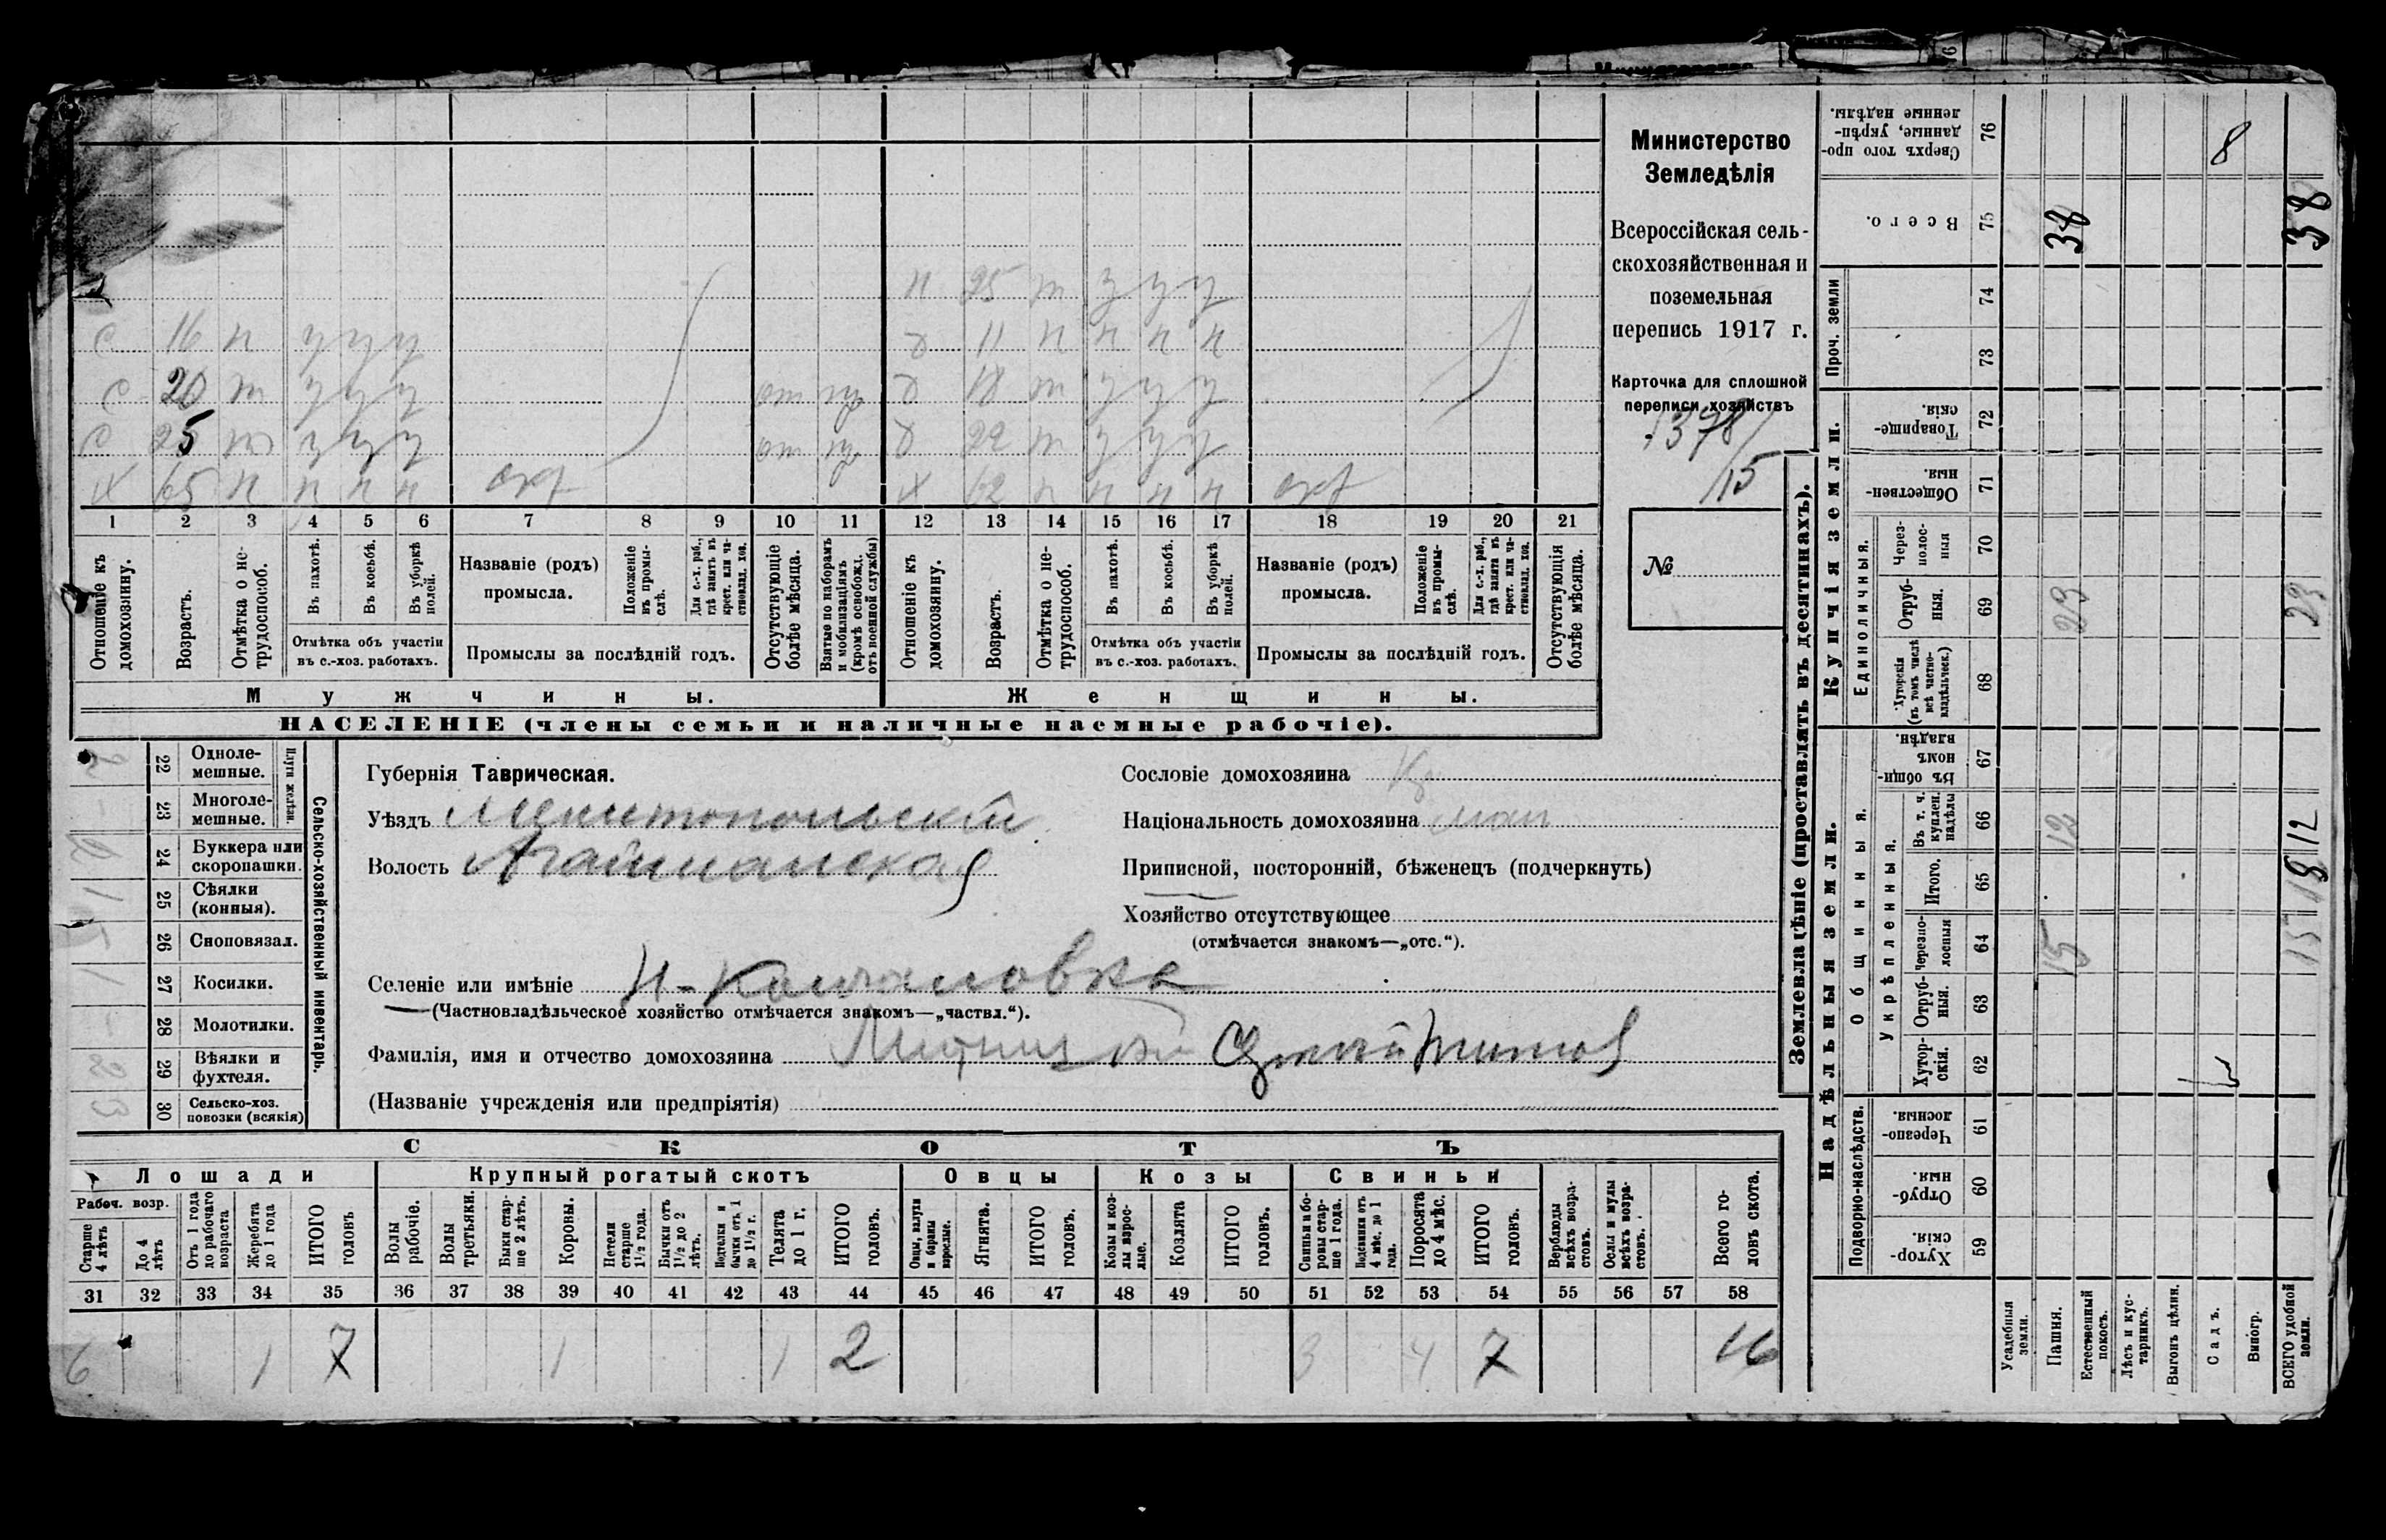 Министерство
Земледѣлія
Всероссійская сель-
скохозяйственная и
поземельная
перепись 1917 г.
Карточка для сплошной
переписи хозяйствъ
1378/
15
№
Н 25 т у у у
С 16 п у у у
Д 11 п п п п
С 20 т у у у от
Д 18 т у у у
С 25 т у у у от
Д 22 т у у у
Х 65 п п п п
Х 62 п п п п
1 2 3 4 5 6 7 8 9 10 11 12 13 14 15 16 17 18 19 20 21
Отношеніе къ домохозяину.
Возрастъ.
Отмѣтка о не-трудоспособ.
Въ пахотѣ.
Въ косьбѣ.
Въ уборкѣ полей.
Отмѣтка объ участіи
въ с.-хоз. работахъ.
Названіе (родъ)
промысла.
Положеніе въ промы-слѣ.
Для с.-х. раб., гдѣ занятъ въ крест. или ча-стновлад. хоз.
Промыслы за послѣдній годъ.
Отсутствующіе болѣе мѣсяца.
Взятые по наборамъ и мобилизаціямъ (кромѣ освобожд. отъ военной службы)
Отношеніе къ домохозяину.
Возрастъ.
Отмѣтка о не-трудоспособ.
Въ пахотѣ.
Въ косьбѣ.
Въ уборкѣ полей.
Отмѣтка объ участіи
въ с.-хоз. работахъ.
Названіе (родъ)
промысла.
Положеніе въ промы-слѣ.
Для с.-х. раб., гдѣ занята въ крест. или ча-стновлад. хоз.
Промыслы за послѣдній годъ.
Отсутствующія болѣе мѣсяца.
Мужчины.
Женщины.
НАСЕЛЕНІЕ (члены семьи и наличные наемные рабочіе).
Сельско-хозяйственный инвентарь.
Плуги желѣзн.
22 Одноле-мешные. 2
23 Многоле-мешные. -
24 Буккера или скоропашки. 2
25 Сѣялки (конныя). 1
26 Сноповязал.
27 Косилки. 1
28 Молотилки. -
29 Вѣялки и фухтеля.
30 Сельско-хоз. повозки (всякія) 3
Губернія Таврическая.
Уѣздъ Мелитопольскій
Волость Агайманская
Селеніе или имѣніе
(Частновладѣльческое хозяйство отмѣчается знакомъ—„частвл.“).
Фамилія, имя и отчество домохозяина
(Названіе учрежденія или предпріятія)
Сословіе домохозяина Кр
Національность домохозяина мал
Приписной, посторонній, бѣженецъ (подчеркнуть)
Хозяйство отсутствующее
(отмѣчается знакомъ—„отс.“).
СКОТЪ
Лошади
Крупный рогатый скотъ
Овцы
Козы
Свиньи
Рабоч. возр.
Старше 4 лѣтъ
До 4 лѣтъ
Отъ 1 года до рабочаго возраста
Жеребята до 1 года
ИТОГО головъ
Волы рабочіе.
Волы третьяки.
Быки стар-ше 2 лѣтъ.
Коровы.
Нетели старше 1½ года.
Бычки отъ 1½ до 2 лѣтъ.
Подтелки и бычки отъ 1 до 1½ г.
Телята до 1 г.
ИТОГО головъ.
Овцы, валухи и бараны взрослые.
Ягнята.
ИТОГО головъ.
Козы и коз-лы взрос-лые.
Козлята
ИТОГО головъ.
Свиньи и бо-ровы стар-ше 1 года.
Подсвинки отъ 4 мѣс. до 1 года.
Поросята до 4 мѣс.
ИТОГО головъ.
Верблюды всѣхъ возра-стовъ.
Ослы и мулы всѣхъ возра-стовъ.
Всего го-ловъ скота.
31 32 33 34 35 36 37 38 39 40 41 42 43 44 45 46 47 48 49 50 51 52 53 54 55 56 57 58
6 1 7 1 1 2 3 4 7 16
Землевладѣніе (проставлять въ десятинахъ).
Надѣльныя земли.
Купчія земли.
Проч. земли
Подворно-наслѣдств.
Общинныя.
Укрѣпленныя.
Единоличныя.
59 Хутор-скія.
60 Отруб-ныя.
61 Черезпо-лосныя
62 Хутор-скія.
63 Отруб-ныя.
64 Черезпо-лосныя
65 Итого.
66 Въ т. ч. куплен. надѣлы
67 Въ общин-номъ владѣн.
68 Хуторскія (въ томъ числѣ всѣ частно-владѣльческ.)
69 Отруб-ныя.
70 Через-полос-ныя
71 Обществен-ныя.
72 Товарище-скія.
73
74
75 Всего.
76 Сверхъ того про-данные, укрѣп-ленные надѣлы.
Усадебныя земли.
Пашня. 15 12 23 38
Естественный покосъ.
Лѣсъ и кус-тарникъ.
Выгонъ цѣлин.
Садъ. 8
Виногр.
ВСЕГО удобной земли. 15 12 23 38